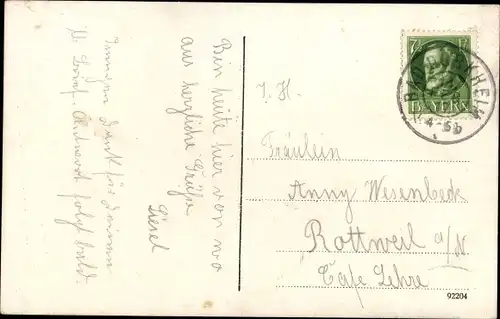 Innigen Dank für Deinen
lb. Brief. Antwort folgt bald.
Bin heute hier von wo
aus herzliche Grüße
Liesel
7½
BAYERN
HEIM
4-5
I. H.
Fräulein
Anny Wesenbeck
Rottweil a/N.
Cafe Lehre
92204